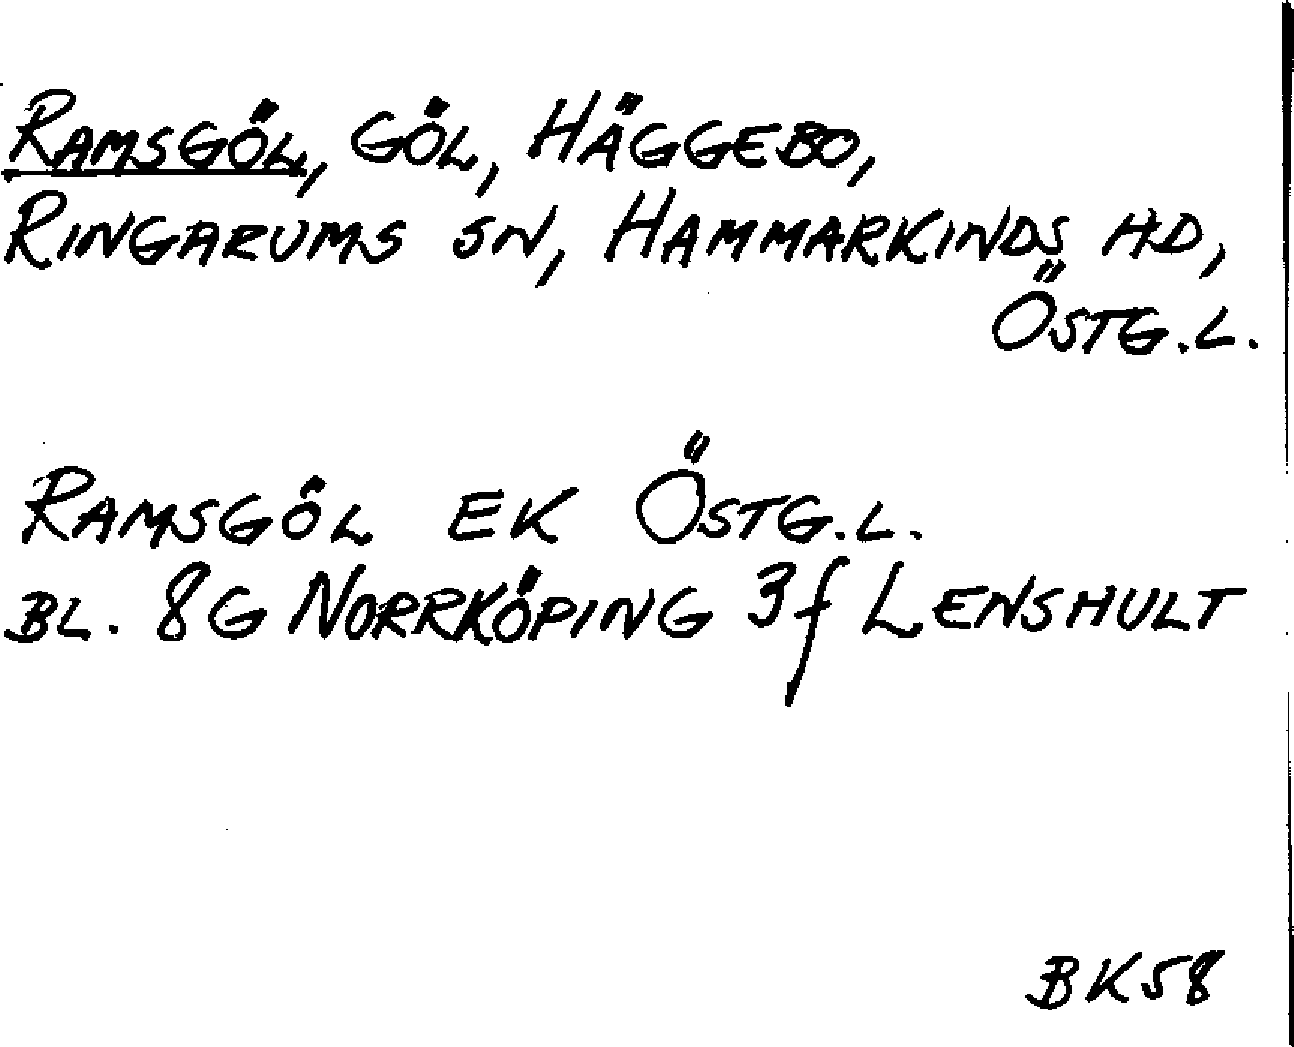 RAMSGÖL, GÖL, HÄGGEBO,
RINGARUMS SN, HAMMARKINDS HD,
ÖSTG.L.
RAMSGÖL EK ÖSTG.L.
BL. 8G NORRKÖPING 3f LENSHULT
BK58